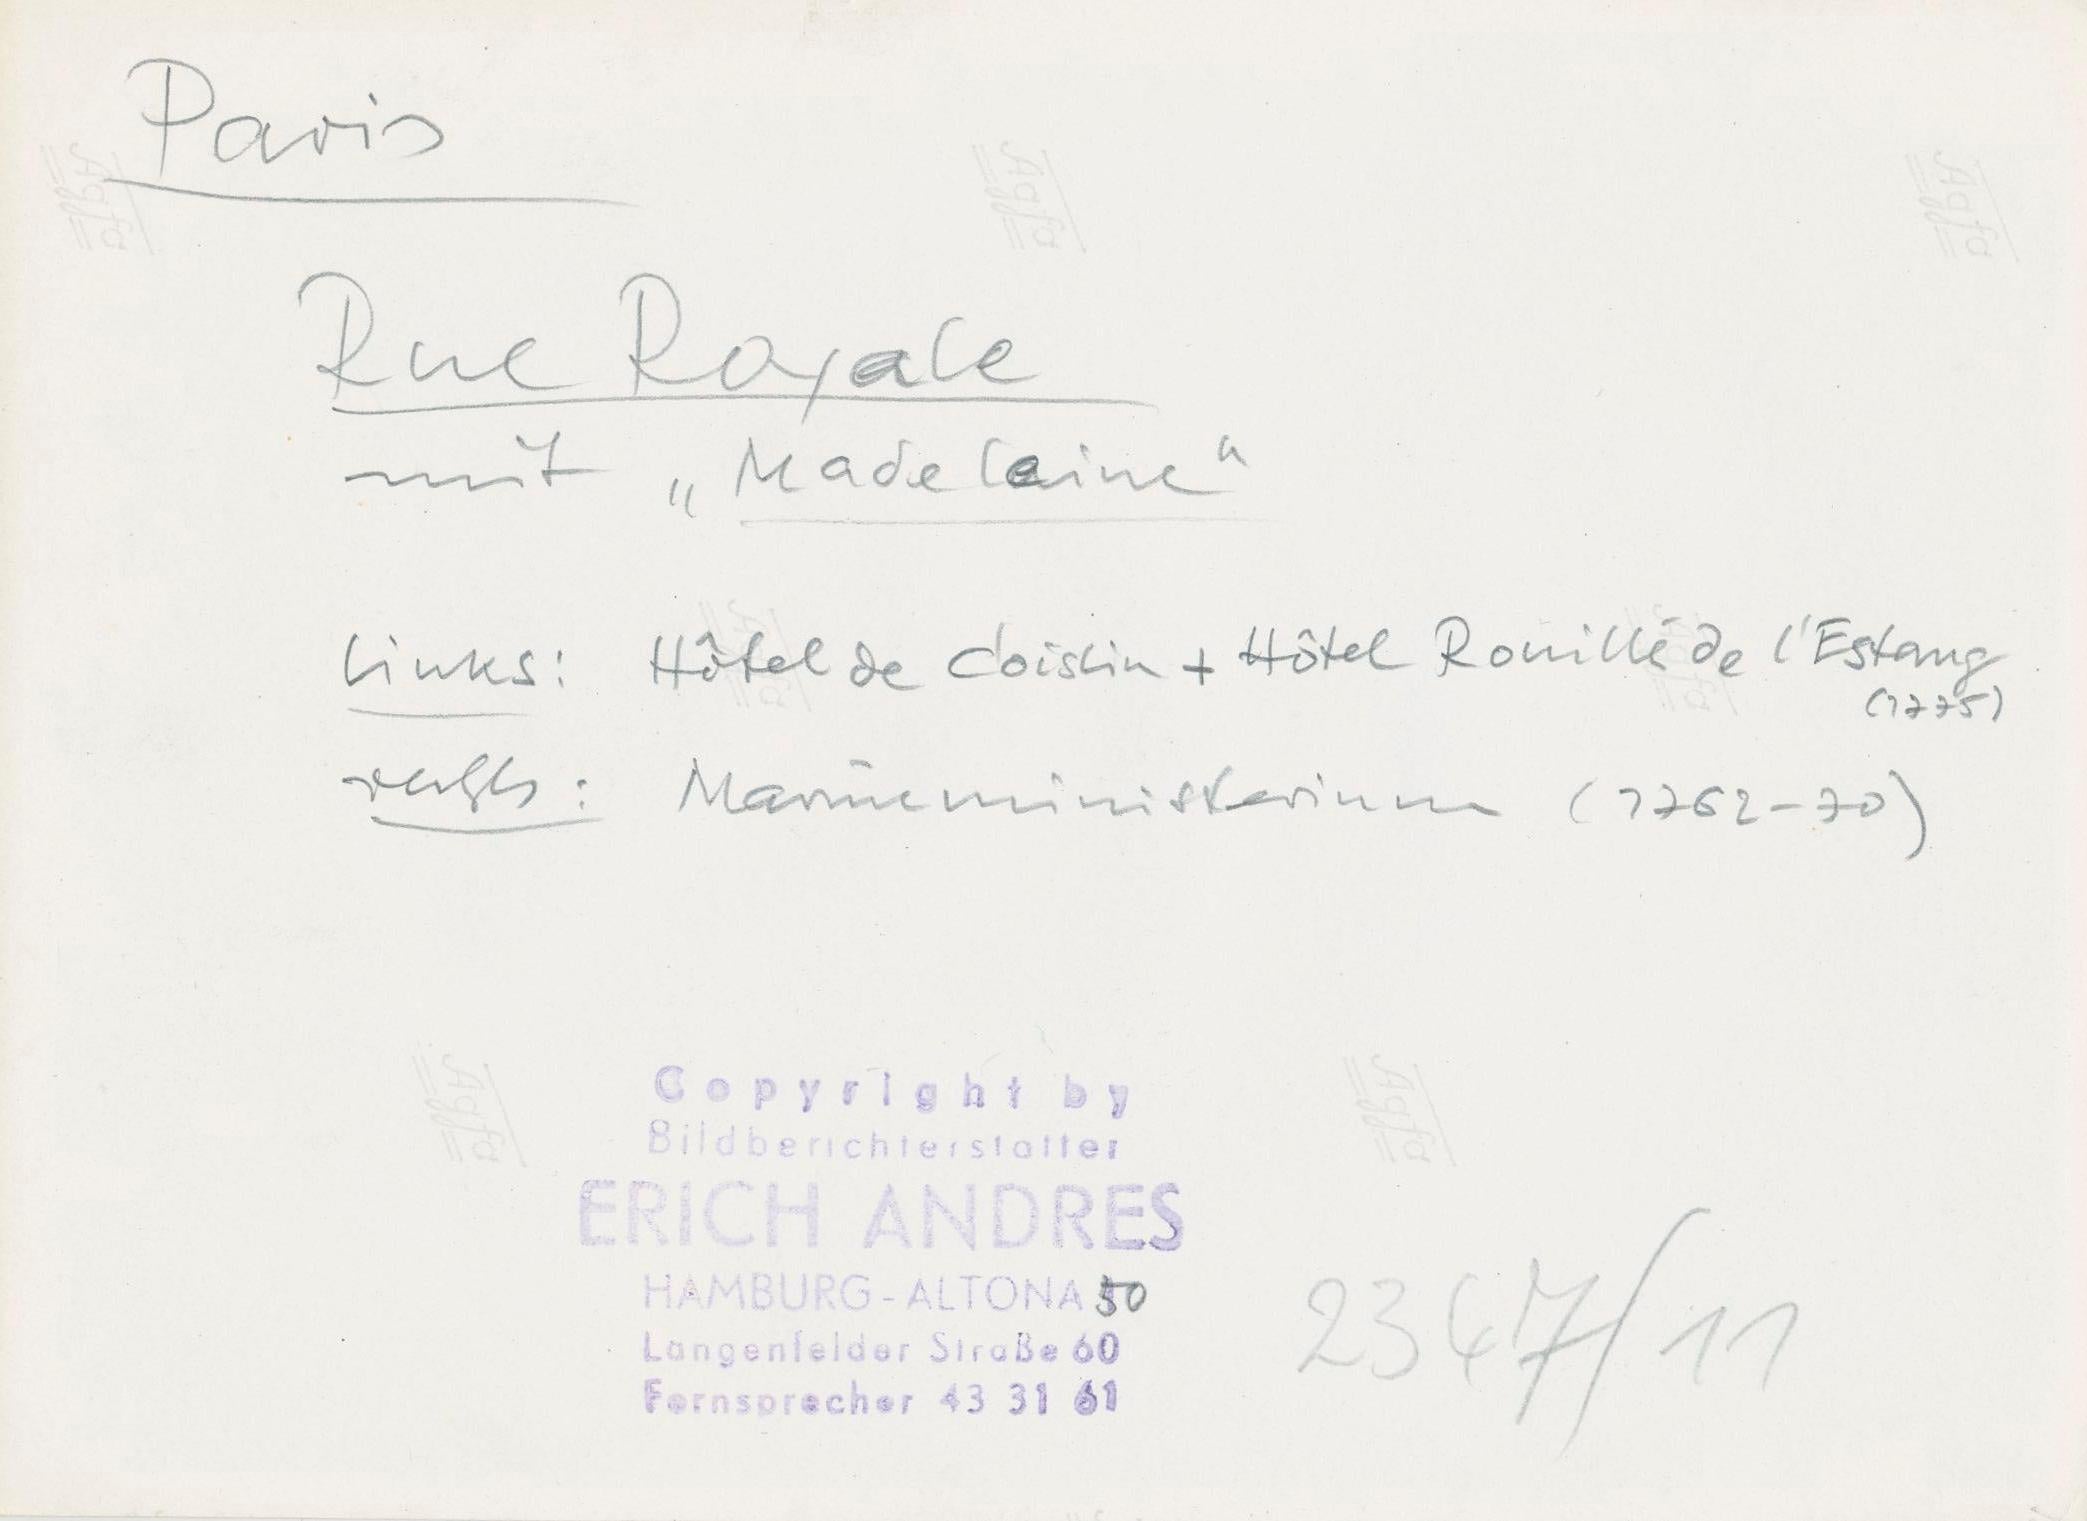 Paris
Rue Royale
mit „Madeleine“
links: Hôtel de Coislin + Hôtel Rouillé de l'Estang
(1775)
rechts: Marineministerium (1762-70)
Copyright by
Bildberichterstatter
ERICH ANDRES
HAMBURG-ALTONA 50
Langenfelder Straße 60
Fernsprecher 43 31 61
2347/11
Agfa
Agfa
Agfa
Agfa
Agfa
Agfa
Agfa